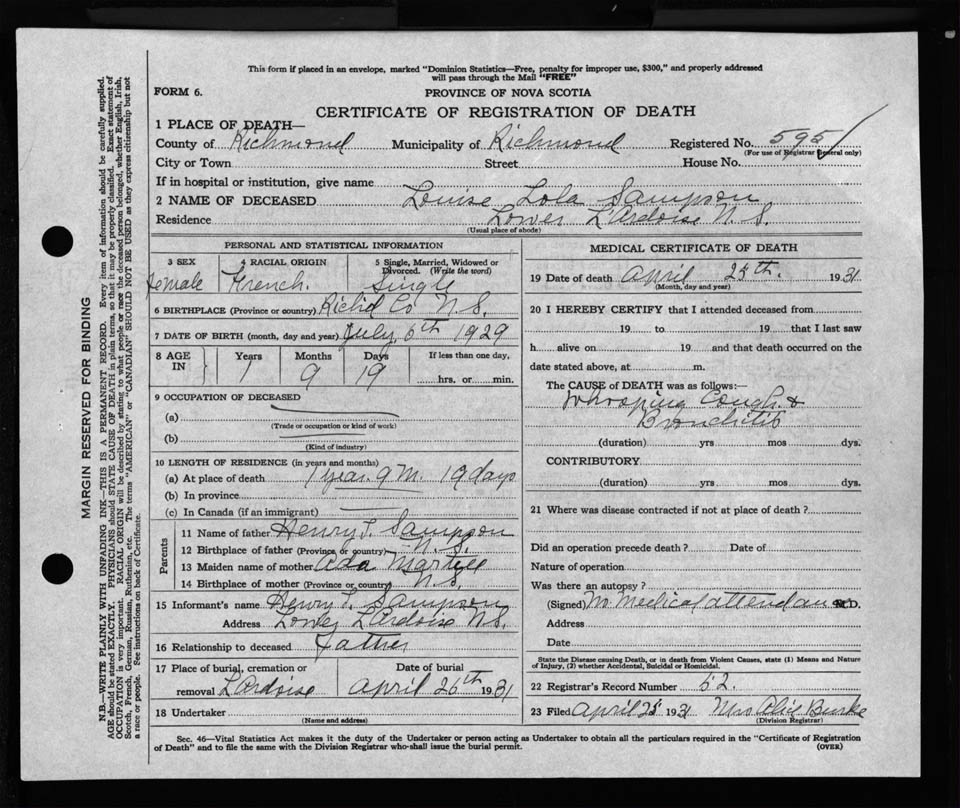 This form if placed in an envelope, marked "Dominion Statistics—Free, penalty for improper use, $300," and properly addressed
will pass through the Mail "FREE"
FORM 6.
PROVINCE OF NOVA SCOTIA
CERTIFICATE OF REGISTRATION OF DEATH
1 PLACE OF DEATH—
County of Richmond Municipality of Richmond Registered No. 595
(For use of Registrar General only)
City or Town Street House No.
If in hospital or institution, give name
2 NAME OF DECEASED Louise Lola Sampson
Residence Lower L'Ardoise N.S.
(Usual place of abode)
PERSONAL AND STATISTICAL INFORMATION
3 SEX 4 RACIAL ORIGIN 5 Single, Married, Widowed or
Divorced. (Write the word)
Female French. Single
6 BIRTHPLACE (Province or country) Richd Co N.S.
7 DATE OF BIRTH (month, day and year) July, 6th 1929
8 AGE IN Years Months Days If less than one day,
1 9 19 hrs. or min.
9 OCCUPATION OF DECEASED
(a)
(Trade or occupation or kind of work)
(b)
(Kind of industry)
10 LENGTH OF RESIDENCE (in years and months)
(a) At place of death 1 year. 9 M. 19 days
(b) In province
(c) In Canada (if an immigrant)
Parents
11 Name of father Henry T. Sampson
12 Birthplace of father (Province or country) N.S.
13 Maiden name of mother Ada Martell
14 Birthplace of mother (Province or country) N.S.
15 Informant's name Henry T. Sampson
Address Lower L'Ardoise N.S.
16 Relationship to deceased Father
17 Place of burial, cremation or Date of burial
removal L'Ardoise April 26th 1931
18 Undertaker
(Name and address)
MEDICAL CERTIFICATE OF DEATH
19 Date of death April 25th. 1931
(Month, day and year)
20 I HEREBY CERTIFY that I attended deceased from
19 to 19 that I last saw
h alive on 19 and that death occurred on the
date stated above, at m.
The CAUSE of DEATH was as follows:—
Whooping Cough &
Bronchitis
(duration) yrs mos dys.
CONTRIBUTORY
(duration) yrs mos dys.
21 Where was disease contracted if not at place of death?
Did an operation precede death? Date of
Nature of operation
Was there an autopsy?
(Signed) No Medical attendance M.D.
Address
Date
State the Disease causing Death, or in death from Violent Causes, state (1) Means and Nature
of Injury, (2) whether Accidental, Suicidal or Homicidal.
22 Registrar's Record Number 52.
23 Filed April 25 1931 Mrs Alice Burke
(Division Registrar)
Sec. 46—Vital Statistics Act makes it the duty of the Undertaker or person acting as Undertaker to obtain all the particulars required in the "Certificate of Registration
of Death" and to file the same with the Division Registrar who shall issue the burial permit.
(OVER)
MARGIN RESERVED FOR BINDING
N.B.—WRITE PLAINLY WITH UNFADING INK—THIS IS A PERMANENT RECORD. Every item of information should be carefully supplied.
AGE should be stated EXACTLY. PHYSICIANS should STATE CAUSE OF DEATH in plain terms, so that it may be properly classified. Exact statement of
OCCUPATION is very important. RACIAL ORIGIN will be described by stating to what people or race the deceased person belonged, whether English, Irish,
Scotch, French, German, Russian, Ruthenian, etc. The terms "AMERICAN" or "CANADIAN" SHOULD NOT BE USED as they express citizenship but not
a race or people. See instructions on back of Certificate.